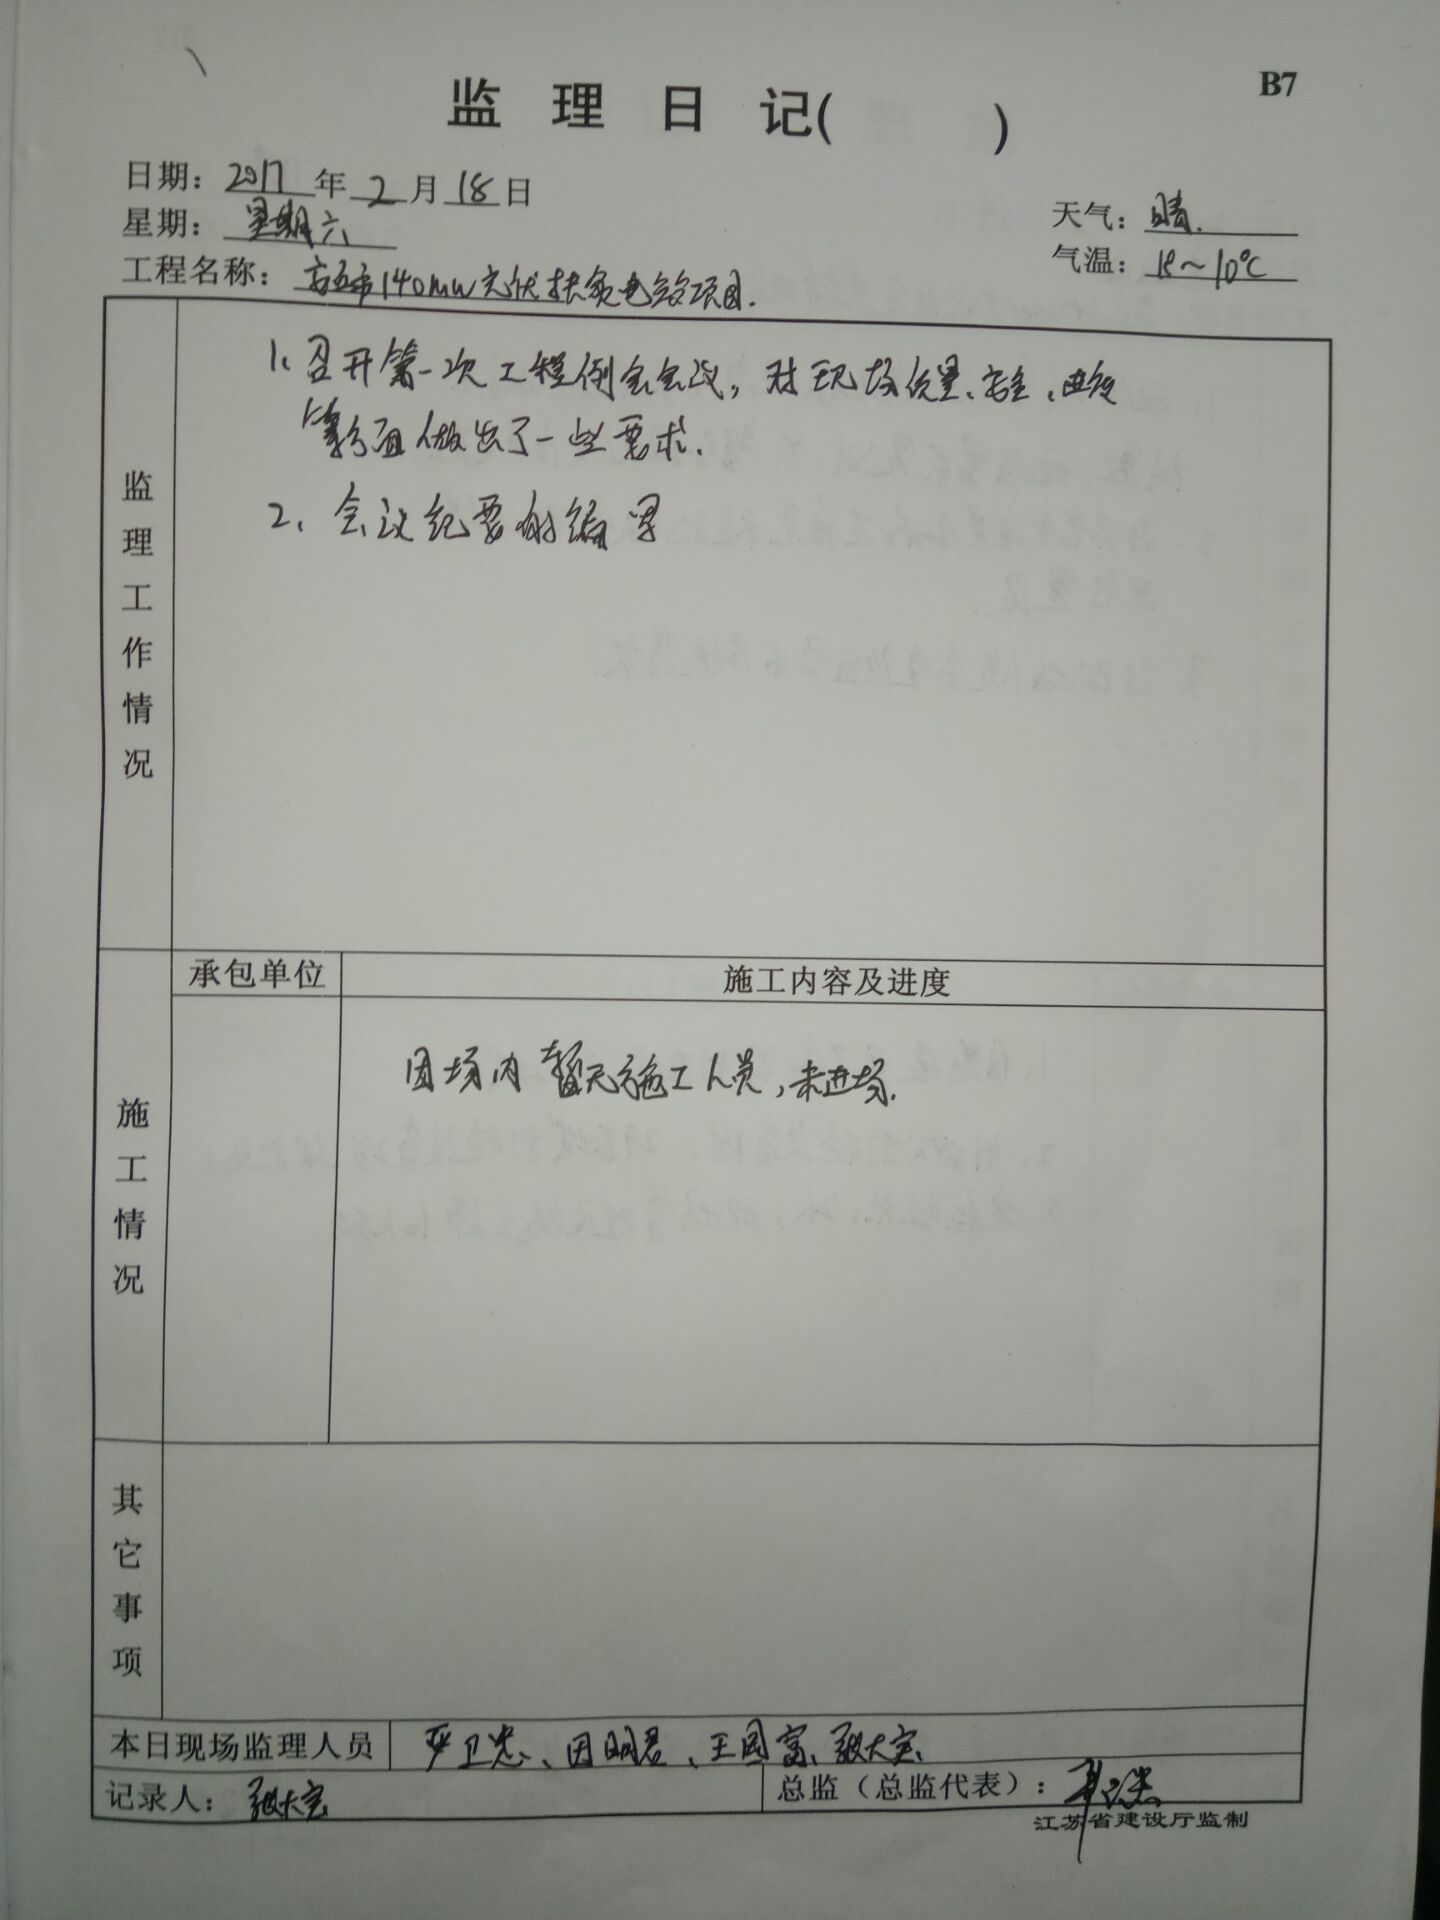 B7
监理日记( )
日期：2017年2月18日
星期：星期六
天气：晴.
工程名称：市140MW光伏扶贫电站项目.
气温：18～10℃
监理工作情况
1、召开第一次工程例会会议，对现场质量、安全、进度
等方面做出了一些要求.
2、会议纪要的编写
承包单位
施工内容及进度
施工情况
因场内暂无施工人员，未进场.
其它事项
本日现场监理人员
严卫忠、田明君、王国富、大宝、
记录人：大宝
总监（总监代表）：
江苏省建设厅监制